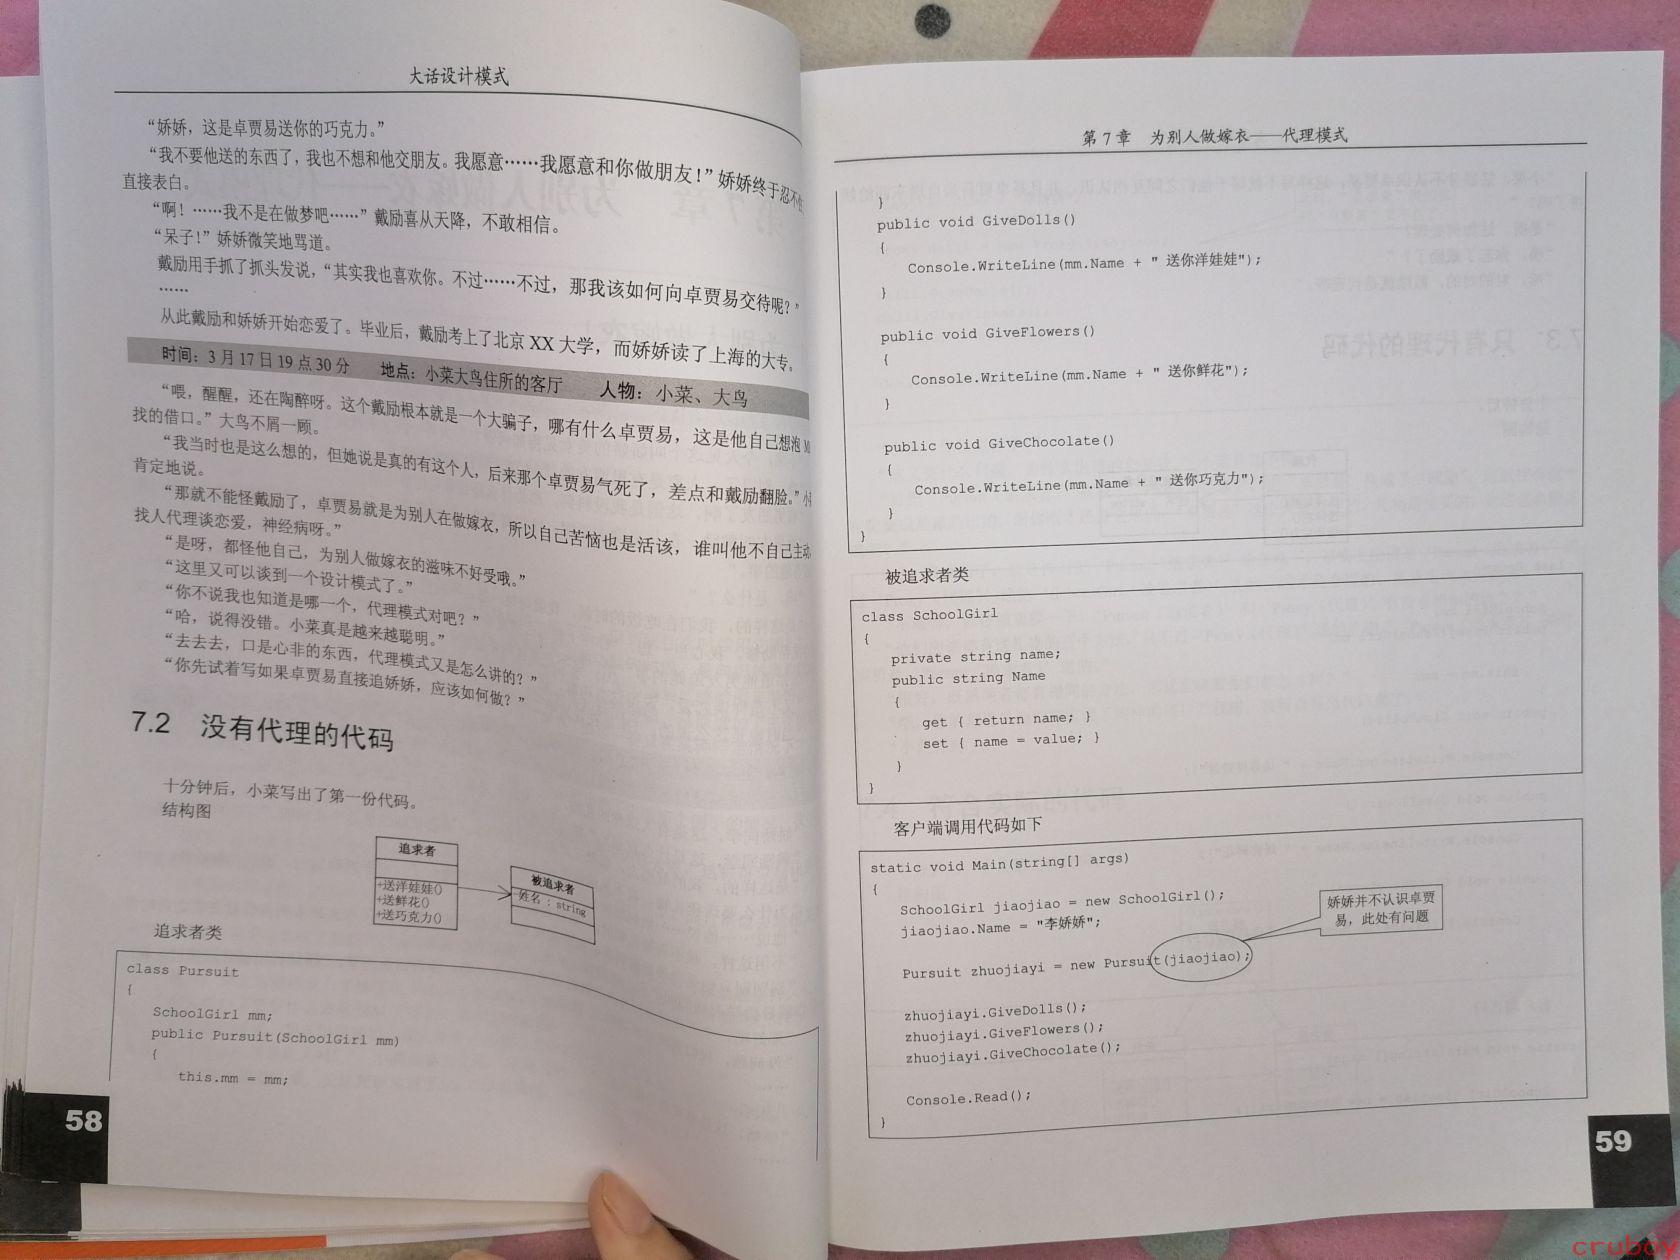 大话设计模式
“娇娇，这是卓贾易送你的巧克力。”
“我不要他送的东西了，我也不想和他交朋友。我愿意……我愿意和你做朋友！”娇娇终于忍不住
直接表白。
“啊！……我不是在做梦吧……”戴励喜从天降，不敢相信。
“呆子！”娇娇微笑地骂道。
戴励用手抓了抓头发说，“其实我也喜欢你。不过……不过，那我该如何向卓贾易交待呢？”
……
从此戴励和娇娇开始恋爱了。毕业后，戴励考上了北京 XX 大学，而娇娇读了上海的大专。
时间：3 月 17 日 19 点 30 分 地点：小菜大鸟住所的客厅 人物：小菜、大鸟
“喂，醒醒，还在陶醉呀。这个戴励根本就是一个大骗子，哪有什么卓贾易，这是他自己想泡
找的借口。”大鸟不屑一顾。
“我当时也是这么想的，但她说是真的有这个人，后来那个卓贾易气死了，差点和戴励翻脸。”小
肯定地说。
“那就不能怪戴励了，卓贾易就是为别人在做嫁衣，所以自己苦恼也是活该，谁叫他不自己主动
找人代理谈恋爱，神经病呀。”
“是呀，都怪他自己，为别人做嫁衣的滋味不好受哦。”
“这里又可以谈到一个设计模式了。”
“你不说我也知道是哪一个，代理模式对吧？”
“哈，说得没错。小菜真是越来越聪明。”
“去去去，口是心非的东西，代理模式又是怎么讲的？”
“你先试着写如果卓贾易直接追娇娇，应该如何做？”
7.2 没有代理的代码
十分钟后，小菜写出了第一份代码。
结构图
追求者
+送洋娃娃()
+送鲜花()
+送巧克力()
被追求者
姓名 : string
追求者类
class Pursuit
{
SchoolGirl mm;
public Pursuit(SchoolGirl mm)
{
this.mm = mm;
58
第 7 章 为别人做嫁衣——代理模式
}
public void GiveDolls()
{
Console.WriteLine(mm.Name + " 送你洋娃娃");
}
public void GiveFlowers()
{
Console.WriteLine(mm.Name + " 送你鲜花");
}
public void GiveChocolate()
{
Console.WriteLine(mm.Name + " 送你巧克力");
}
}
被追求者类
class SchoolGirl
{
private string name;
public string Name
{
get { return name; }
set { name = value; }
}
}
客户端调用代码如下
static void Main(string[] args)
{
SchoolGirl jiaojiao = new SchoolGirl();
jiaojiao.Name = "李娇娇";
Pursuit zhuojiayi = new Pursuit(jiaojiao);
娇娇并不认识卓贾
易，此处有问题
zhuojiayi.GiveDolls();
zhuojiayi.GiveFlowers();
zhuojiayi.GiveChocolate();
Console.Read();
}
59
cruboy